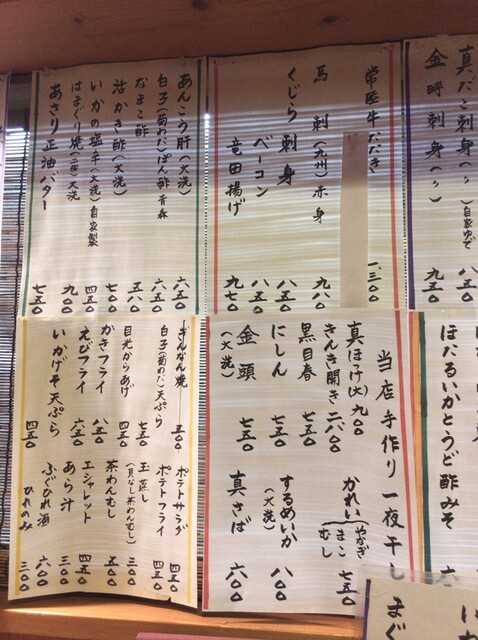 真だこ刺身(〃)自家ゆで 八五
金時刺身(〃) 九五〇
常陸牛たたき 一、三〇〇
馬刺(九州)赤身 九八〇
くじら刺身 八五〇
ベーコン 八五〇
竜田揚げ 九七〇
あんこう肝(大洗) 六五〇
白子(菊わた)ぽん酢 青森 六五〇
なまこ酢 五五〇
活かき酢(大洗) 七〇〇
いかの塩辛(大洗)自家製 四五〇
はまぐり焼(二ヶ)大洗 九〇〇
あさり正油バター 七五〇
ほたるいかとうど酢みそ
当店手作り一夜干し
真ほっけ(大) 九〇〇
きんき開き 二六〇〇
黒目春 七五〇
にしん 七五〇
金頭(大洗) 七五〇
かれい
やなぎ
まこ
むし
七五〇
するめいか(大洗) 八〇〇
真さば 六〇〇
ぎんなん焼 五〇〇
白子(菊わた)天ぷら 七五〇
目光からあげ 六五〇
かきフライ 八五〇
えびフライ 六五〇
いかげそ天ぷら 四五〇
ポテトサラダ 四五〇
ポテトフライ 四五〇
玉蒸し(具なし茶わんむし) 三〇〇
茶わんむし 五五〇
エシャレット 四五〇
あら汁 三〇〇
ふぐひれ酒 六〇〇
ひれのみ 三〇〇
まぐ